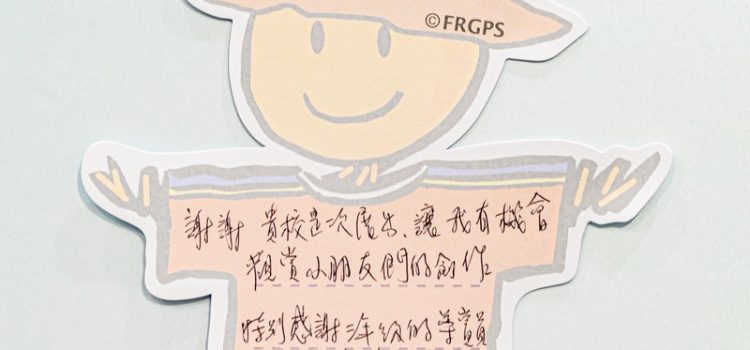 ©FRGPS
謝謝 貴校是次展出、讓我有機會
觀賞小朋友們的創作
特別感謝三年級的導賞員